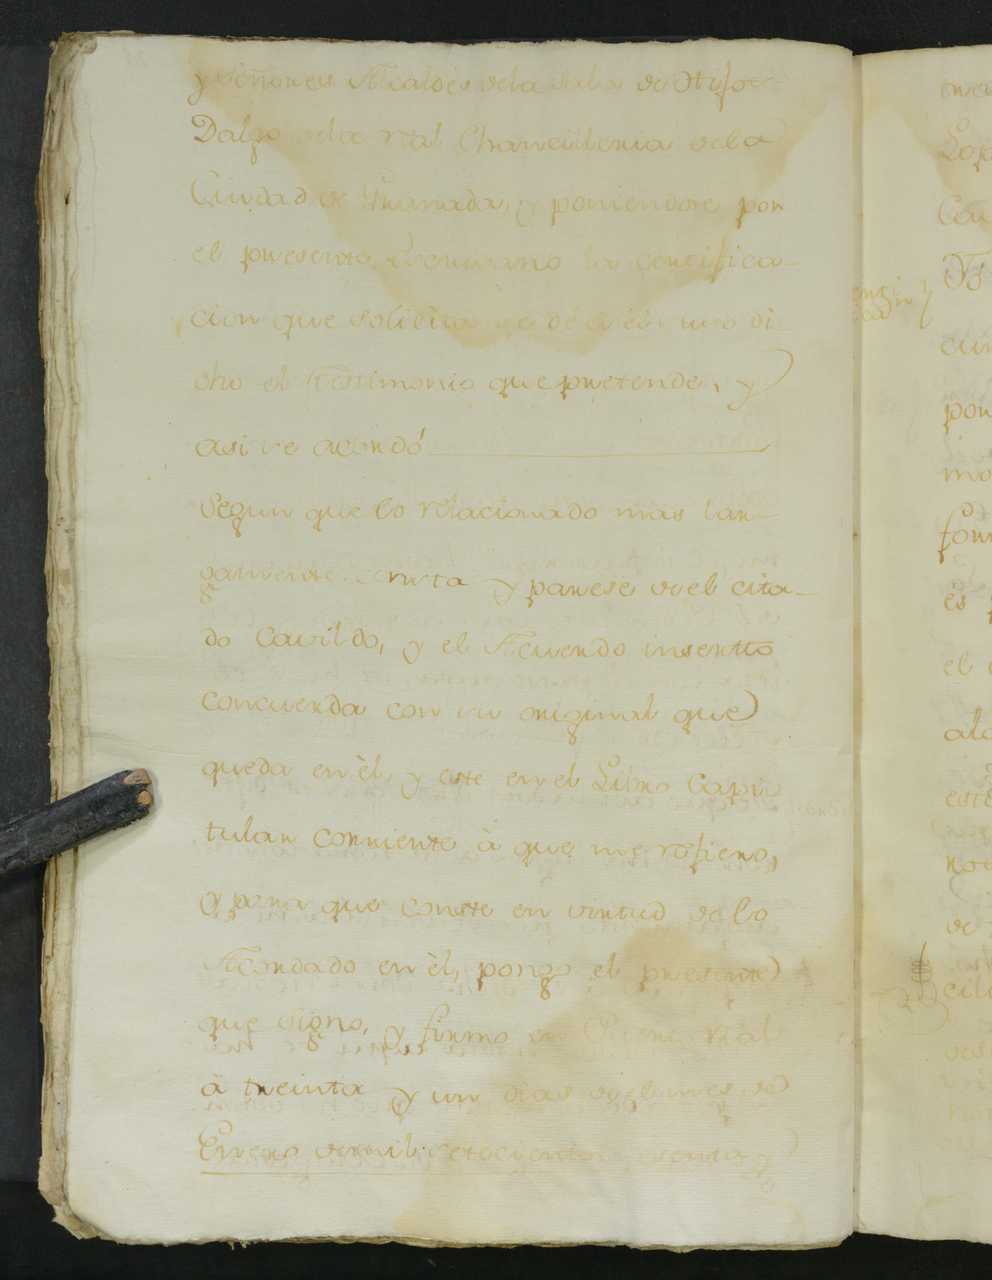 y Señores Alcaldes dela Sala de Hijos
Dalgo dela real Chancilleria dela
Ciudad de Granada, y poniendose por
el presente Escrivano la certifica-
cion que solicita se dé á
cho el testimonio que pretende, y
asi se acordó
Segun que lo relacionado mas lar-
gamente consta y parese de el cita-
do Cavildo, y el Acuerdo inserto
concuerda con su original que
queda en èl, y este en el Libro Capi
tular corriente à que me refiero,
y para que conste en virtud de lo
Acordado en èl, pongo el presente
que signo, y firmo en Puente real
à treinta y un dias del mes de
Enero de mil setecientos
en
Lop
Ciu
cin
pon
mo
for
es
el
alc
este
nou
de